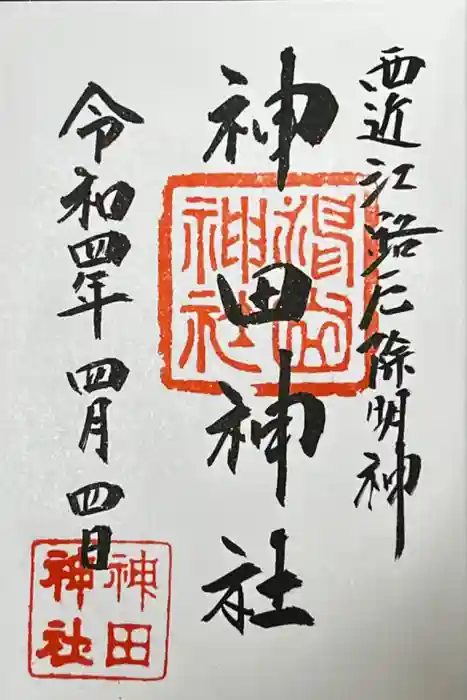 西近江路厄除明神
神田神社
令和四年四月四日
神田
神社